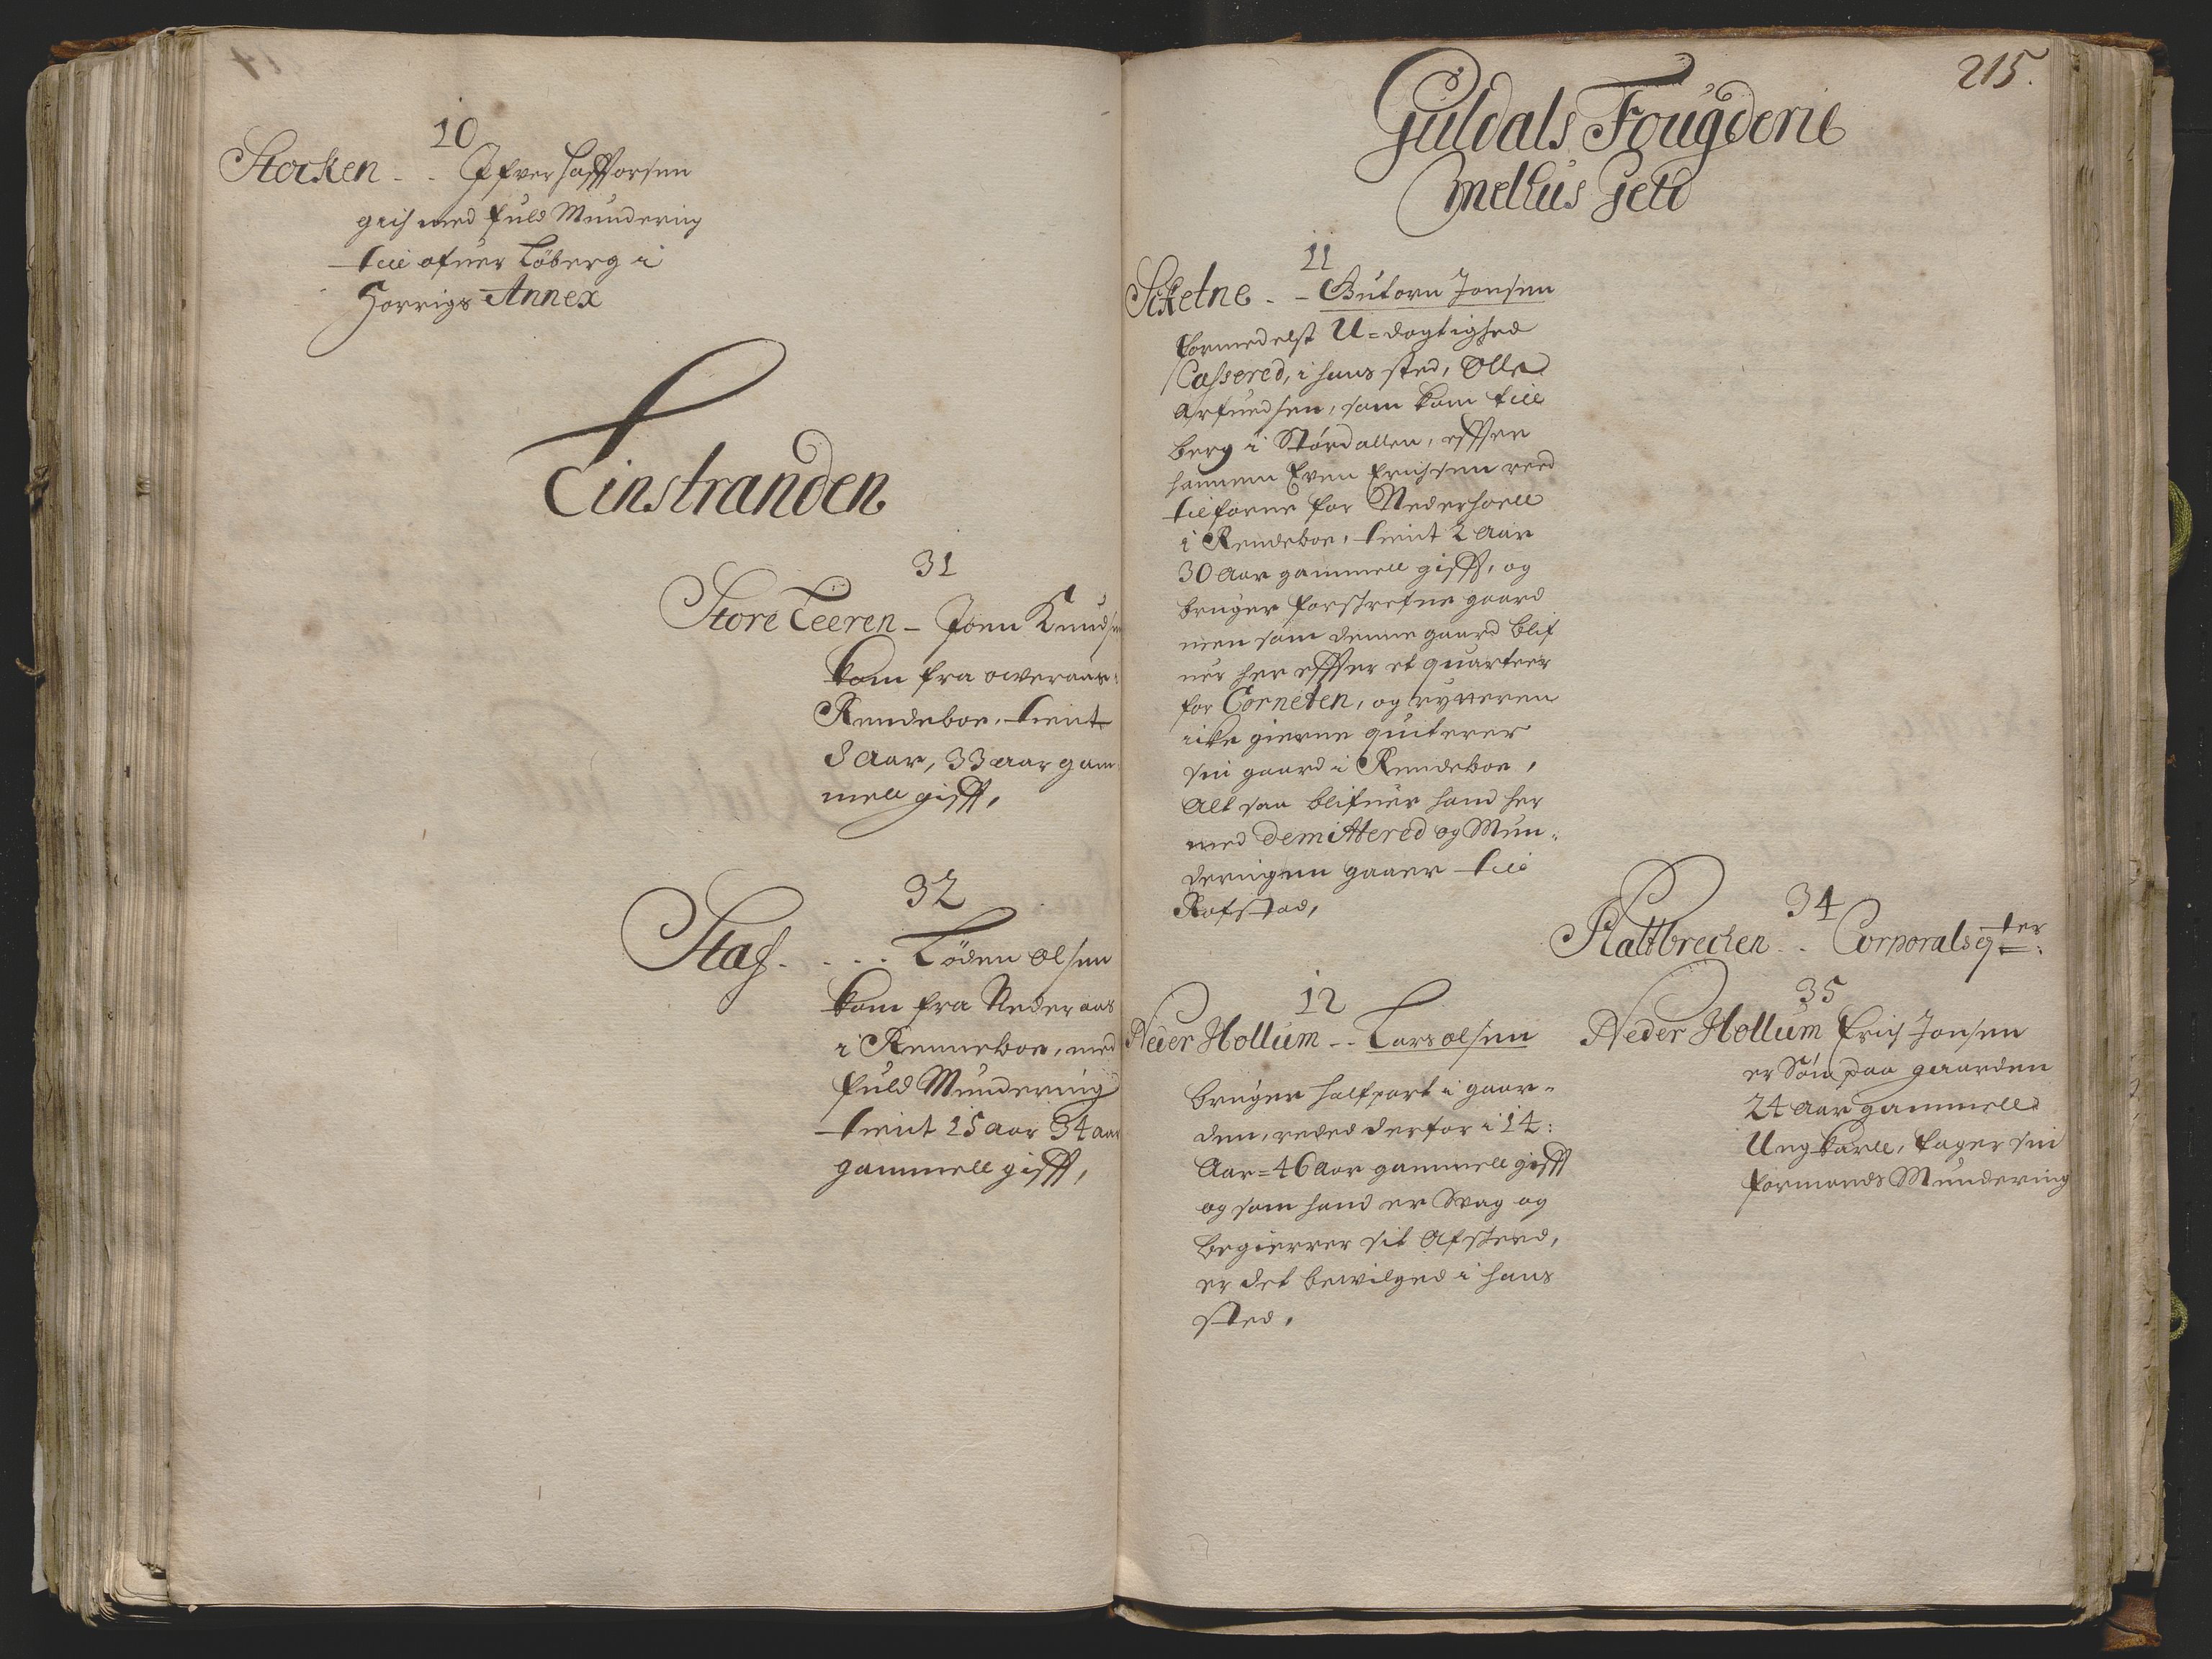 10
Stocken - - Ifver Haffvorsen
gich med fuld Mundering
till ofver Løberg i
Horrigs Annex
Leinstranden
31
Store Leeren - Joen Knudsen
kom fra overaas
Rendeboe, tient
8 Aar, 33 aar gam-
mell gifft,
32
Staf - - - - Løden Olsen
kom fra Nederaas
i Renneboe, med
fuld Mundering
tient 15 Aar 34 aar
gammell gifft,
215.
Guldals Fougderie
Melhus Geld
11
Sketne - - Gutorn Jonsen
formedelst U-dygtighed
Cassered, i hans sted, Olle
Arfuedsen, som kom till
berg i Størdallen, effter
hannem Even Erichsen reed
tilforne for Nederhoell
i Rendeboe, tient 2 Aar
30 Aar gammell gifft, og
bruger forskrefne gaard
men som denne gaard blif
uer her effter et quarteer
for Corneten, og rytteren
icke gierne quiterer
sin gaard i Rendeboe,
Alt saa blifuer hand her
med demittered og Mun-
deringen gaaer till
Rofstad,
12
Neder Hollum - - Lars Olsen
bruger halfpart i gaar-
den, reded derfor i 14:
Aar = 46 Aar gammell gifft
og som hand er Svag og
begierrer sit Afskeed,
er det bewilged i hans
sted,
34
Plattbrechen - - Corporals qter:
35
Neder Hollum Erich Jonsen
er Søn paa gaarden
24 Aar gammell
Ung karll, tager sin
formands Mundering